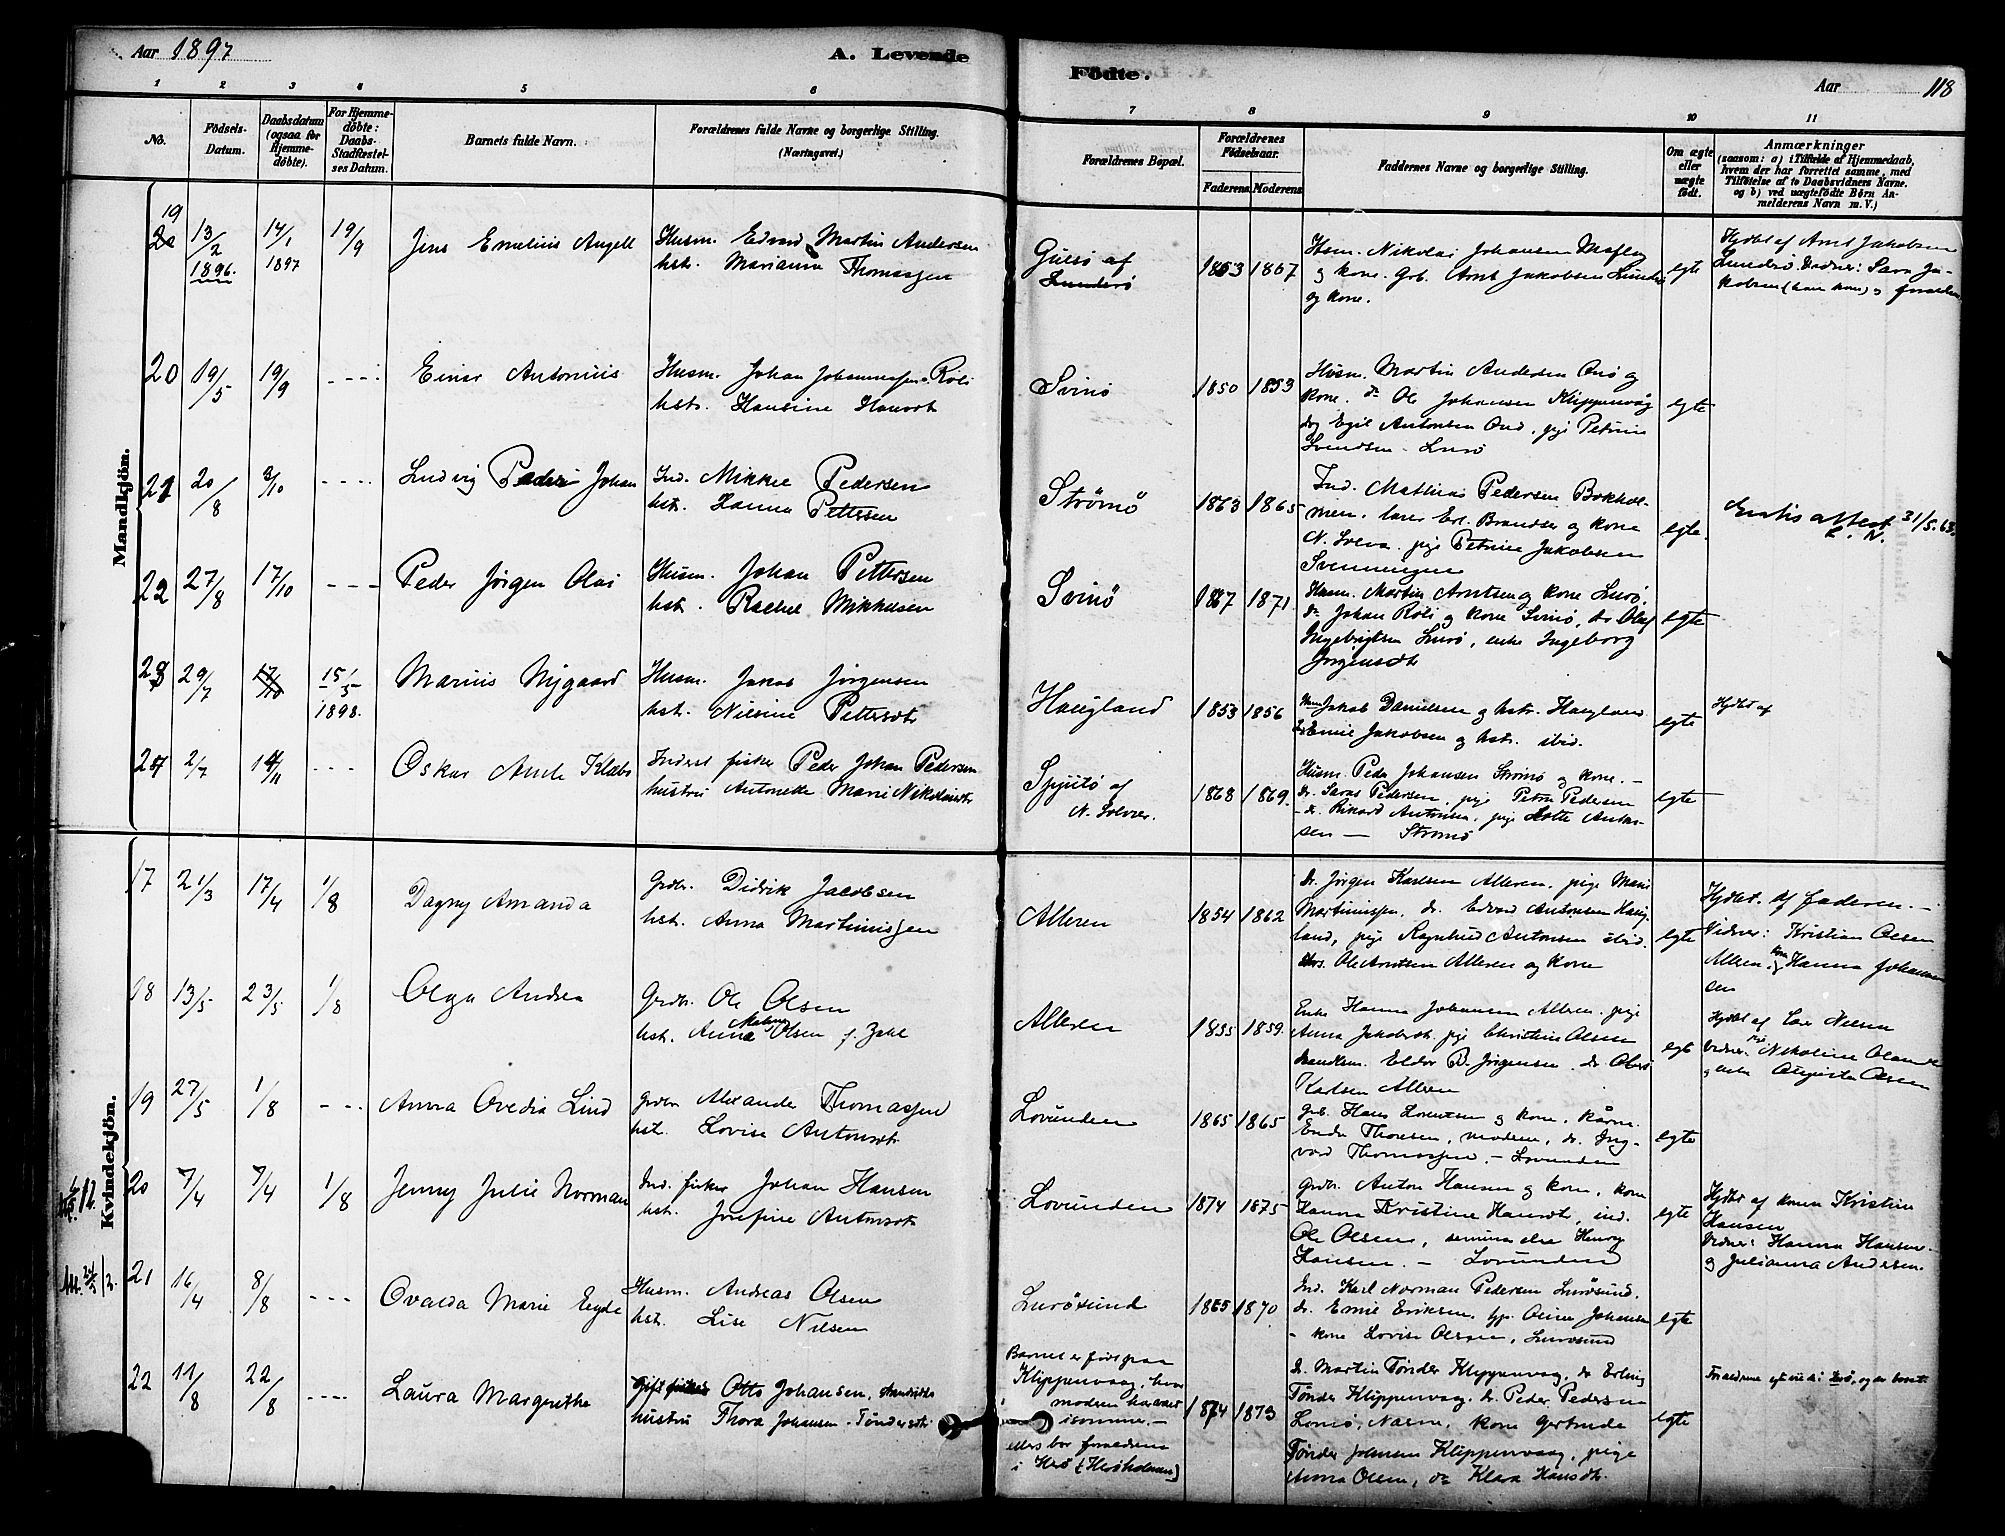 Aar 1897
A. Levende
Födte.
Aar
118
1 2 3 4 5 6 7 8 9 10 11
No.
Födsels-Datum.
Daabsdatum (ogsaa for Hjemmedöbte).
For Hjemmedöbte: Daabs-Stadfæstelses Datum.
Barnets fulde Navn.
Forældrenes fulde Navne og borgerlige Stilling. (Næringsvei.)
Forældrenes Bopæl.
Forældrenes Födselsaar.
Faderens. Moderens.
Faddernes Navne og borgerlige Stilling.
Om ægte eller uægte födt.
Anmærkninger
(saasom: a) i Tilfælde af Hjemmedaab, hvem der har forrettet samme, med Tilföielse af to Daabsvidners Navne, og b) ved uægtefödte Börn Anmelderens Navn m. V.)
Mandkjön.
19
13/2 1896. 14/1 1897 19/9
Jens Emelius Angell
Husm. Edvard Martin Andersen
hst. Marianna Thomassen
Gulsö af
Lunderö
1853 1867
Husm. Nikolai Johansen
og kone. Grb. Arnt Jakobsen Lunderö
og kone.
egte
Hjdbt af Arnt Jakobsen
Lunderö. Vidner: Sara Ja-
kobsen (hans kone) og
20 19/5 19/9 - - -
Einar Antonius
Husm. Johan Johannessen Röli
hst. Hansine Hansdt
Svinö
1850 1853
Husm. Martin Andersen Onö og
kone. do Ole Johansen Klippenvåg
drg Egil Antonsen Onö, pige Petrine
Svendsen - Lurö
egte
21 20/8 3/10 - - - -
Ludvig Peder Johan
Ind. Mikkel Pedersen
hst. Hanna Pettersen
Strömö
1863 1865
Ind. Mathias Pedersen Bokhol-
men. lærer Erl. Brandser og kone
N. Solvær. pige Petrine Jakobsen
Svenningen
egte.
Gratis attest 31/5. 63.
22 27/8 17/10 - - -
Peder Jörgen Olai
Husm. Johan Pettersen
hst. Rachel Mikkelsen
Svinö
1867 1871
Husm. Martin Arntsen og kone Lurö.
do Johan Röli og kone Svinö, dr Olaf
Ingebrigtsen Lurö, enke Ingeborg
Jörgensdt
egte
23 29/7 17/10 15/5 1898.
Marius Nygaard
Husm. Jakob Jörgensen
hst. Nielsine Pettersdt
Haugland
1853 1856
Jakob Danielsen og hstr. Haugland
Emil Jakobsen og hstr. ibid.
egte
Hjdbt af
24 2/7 14/11 - - -
Oskar Arnt Klæbo
Inderst fisker Peder Johan Pedersen
hustru Antonette Marie Nikolaisdt
Spjutö af
N. Solvær.
1868 1869.
Husm. Peder Johansen Strömö og kone. -
dr. Saras Pedersen, pige Petra Pedersen
- dr. Rikard Antonsen, pige Lotte Anton-
sen - Strömö
egte
Kvindekjön.
17 21/3 17/4 1/8
Dagny Amanda
Grdbr. Didrik Jacobsen
hst. Anna Martinussen
Alleren
1854 1862
dr. Jörgen Karlsen Alleren. pige Marie
Martinussen. dr. Edvard Antonsen Haug-
land, pige Ragnhild Antonsen ibid.
Ole Arntsen Alleren og kone
egte
Hjdbt. af faderen. -
Vidner: Kristian Olsen
Alleren. kone Hanna Johann-
sen
18 13/5 23/5 1/8
Olga Andrea
Grdbr. Ole Olsen
hst. Anna Malena Olsen f. Zahl
Alleren
1855 1859.
Enke Hanna Johansen Alleren. pige
Anna Jakobsdt. pige Christine Olsen
Handlsm. Eldor B. Jörgensen. dr. Oluf
Karlsen Alleren
egte
Hjdbt af Lars Nielsen
Vidner: pige Nekoline
og enke Augusta Olsen
19 27/5 1/8 - - -
Anna Ovedia Lind
Grdbr Alexander Thomassen
hst. Lovise Antonsdt
Lovunden
1865 1865
Grb. Hans Lorentsen og kone, kårm.
Endre Thoresen, moderen, dr. Ing-
vard Thomassen. - Lovunden
egte
12
20 7/4 7/4 1/8
Jenny Julie Norman
Ind. fisker Johan Hansen
hst. Josefine Antonsdt
Lovunden
1874 1875
Grdbr. Anton Hansen og kone, kone
Hanna Kristine Hansdt, ind.
Ole Olsen, seminarelev Henry
Hansen. - Lovunden
egte
Hjdbt af konen Kristine
Hansen
Vidner: Hanna Hansen -
og Julianna Andersen.
21 16/4 8/8 - - -
Ovalda Marie Eyde
Husm. Andreas Olsen
hst. Lise Nilsen
Lurösund
1865 1870
Ind. Karl Norman Pedersen Lurösund.
dr. Emil Eriksen, Johansen
- kone Lovise Olsen, Lurösund
egte
22 11/8 22/8 - - - -
Laura Margrethe
Gift fisker Otto Johansen,
hustru Thora Johansen f. Tönderdt
Barnet er födt paa
Klippenvaag, hvor
modern har været
i sommer. -
ellers bor foreldrene
i Herö [Heröholmen]
1874 1873
Dr. Martin Tönder Klippenvaag, dr Erling
Tönder Klippenvaag. dr. Peder Pedersen
Lovisö, Næsne, kone Gertrude
Tönder Johansen Klippenvaag, pige
Anna Olsen, do Klara Hansdt.
egte
Forældrene gift i Herö, og er bosat